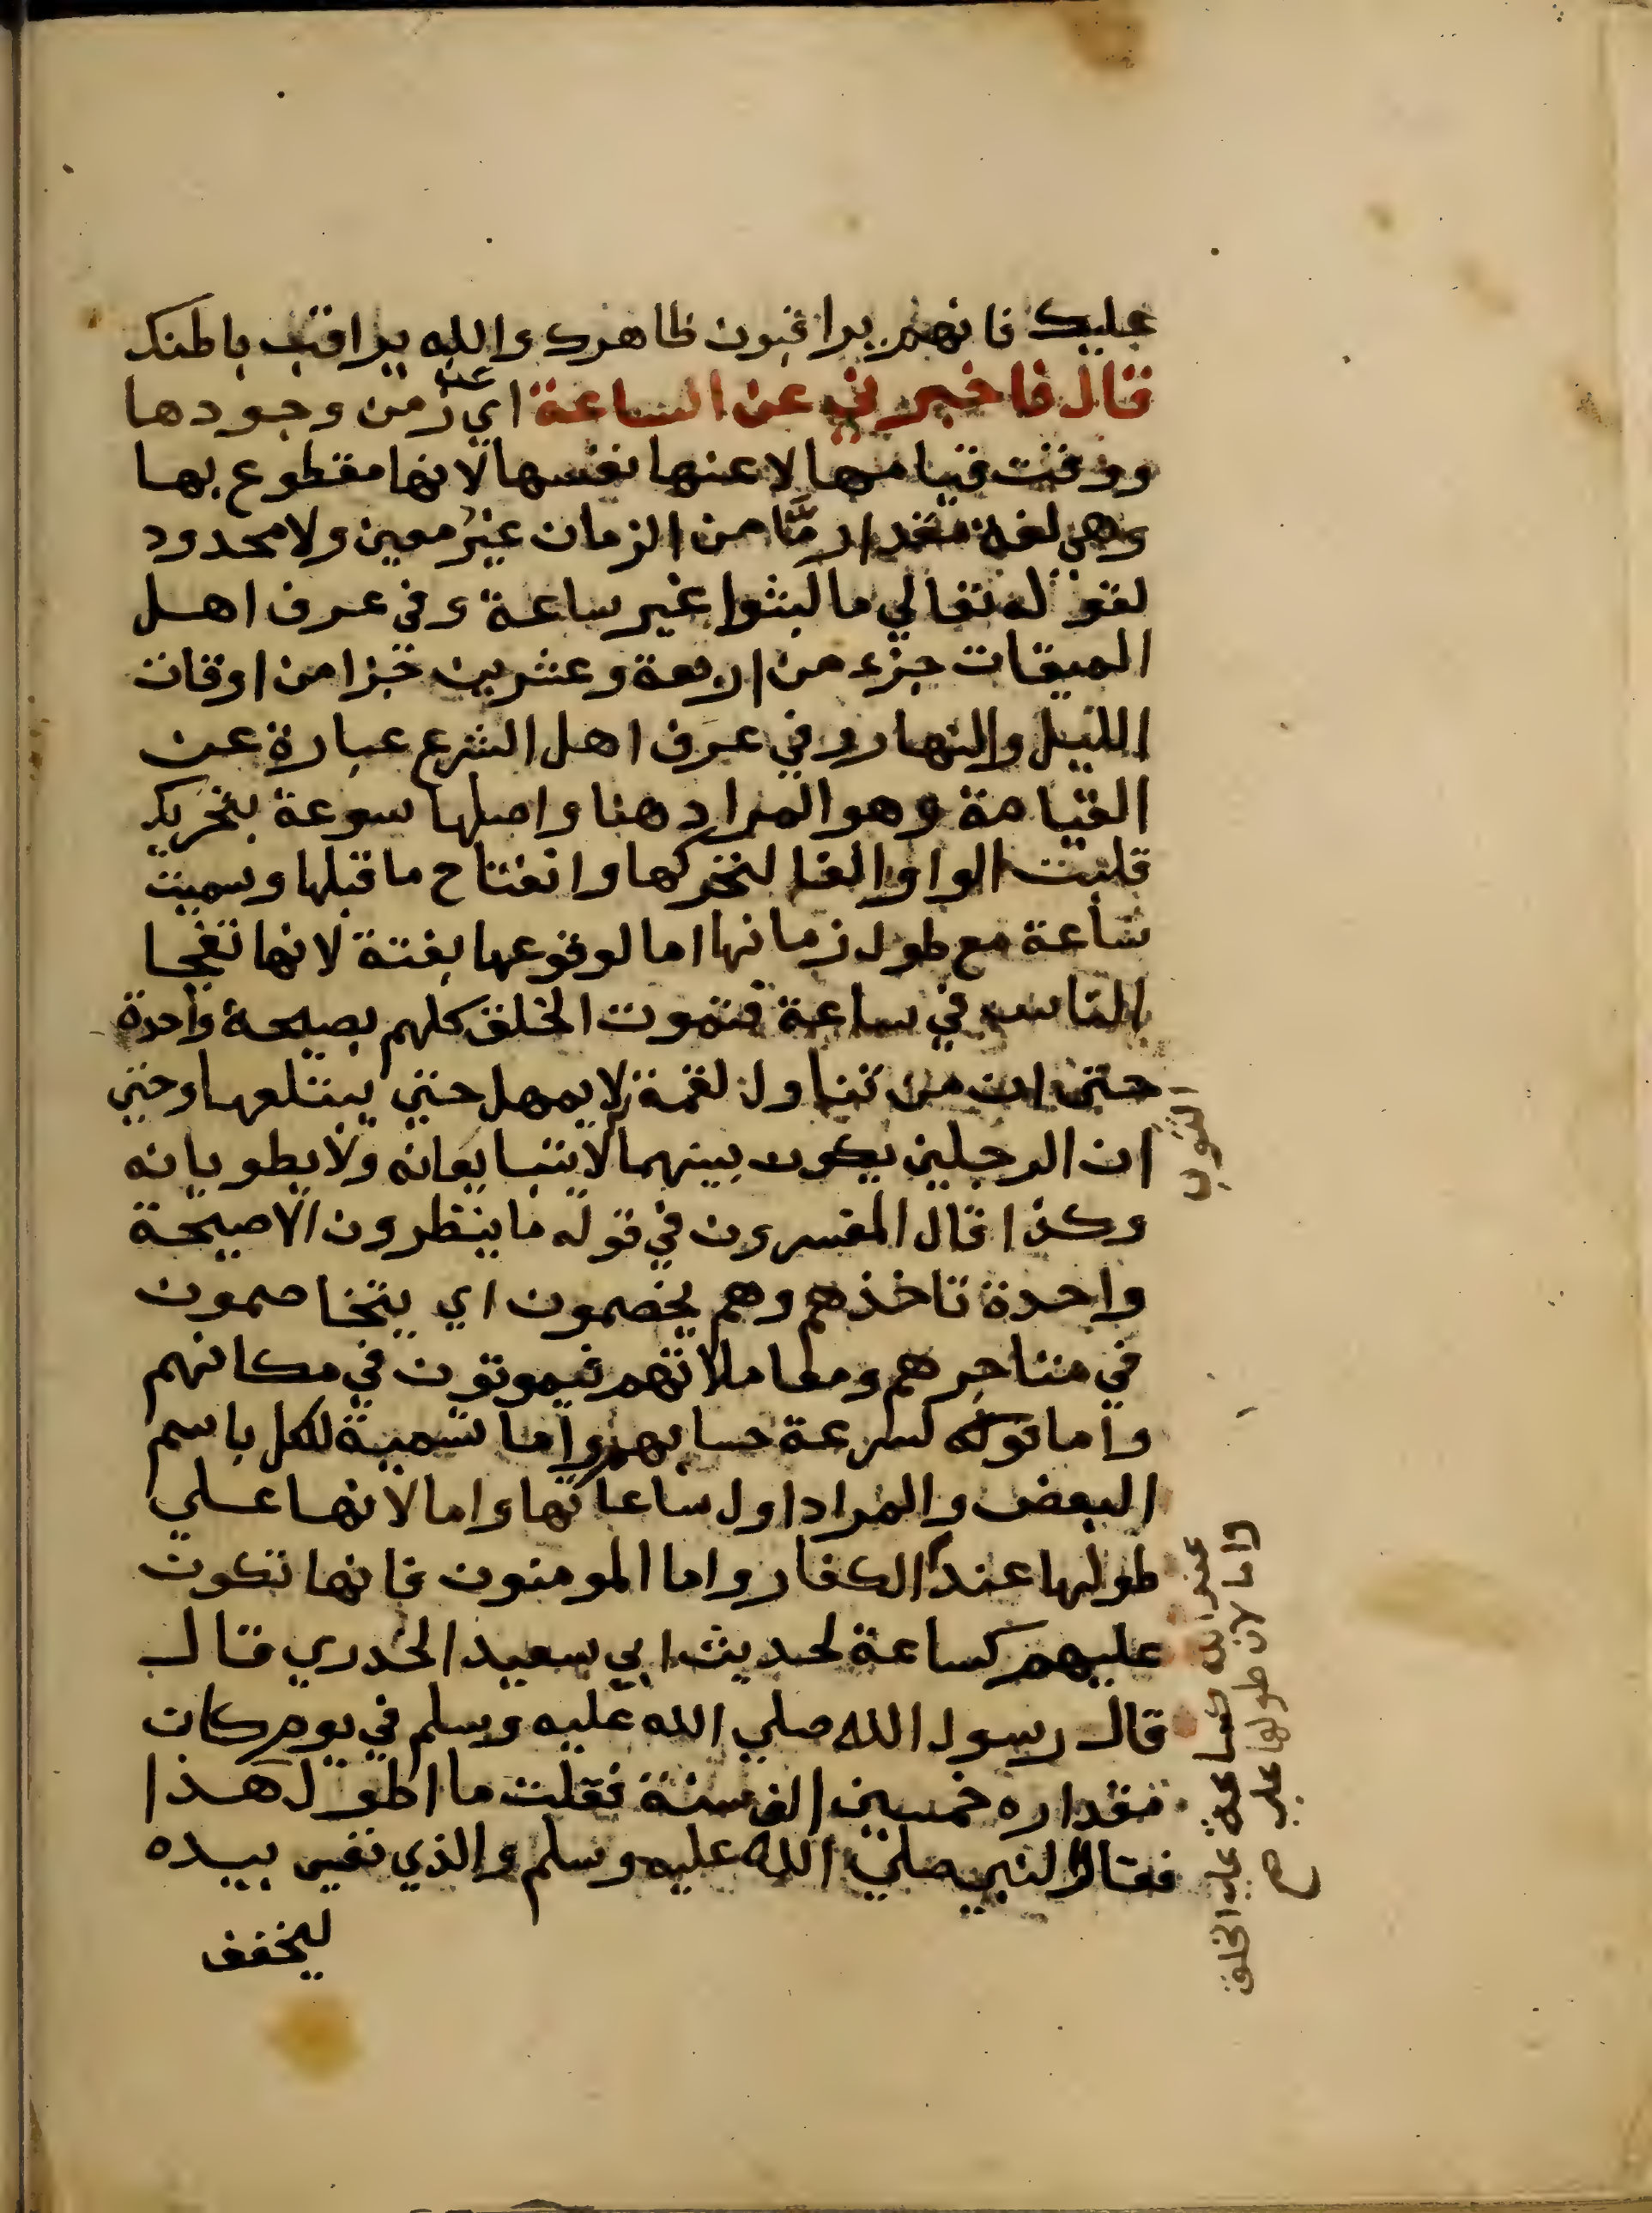 عليك فانهم يراقبون ظاهرك والله يراقب باطنك
قال فاخبرني عن الساعة اي عن زمن وجودها
ووقت قيامها لا عنها نفسها لانها مقطوع بها
وهي لغة مقدار مَّا من الزمان غير معين ولا محدود
لقوله تعالي ما لبثوا غير ساعة وفي عرف اهل
الميقات جزء من اربعة وعشرين جزا من اوقات
الليل والنهار وفي عرف اهل الشرع عبارة عن
القيامة وهو المراد هنا واصلها سوعة بتحريك
قلبت الواو الفا لتحركها وانفتاح ما قبلها وسميت
ساعة مع طول زمانها اما لوقوعها بغتة لانها تفجا
الناس في ساعة فتموت الخلق كلهم بصيحة واحدة
حتي ان من تناول لقمة لا يمهل حتي يبتلعها وحتي
ان الرجلين يكون بينهما لا يتبايعانه ولا يطويانه
الثوب
وكذا قال المفسرون في قوله ما ينظرون الا صيحة
واحدة تاخذهم وهم يخصمون اي يتخاصمون
في متاجرهم ومعاملاتهم فيموتون في مكانهم
واما قوله لسرعة حسابهم واما تسمية لكل باسم
البعض والمراد اول ساعاتها واما لانها علي
طولها عند الكفار واما المومنون فانها تكون
عليهم كساعة لحديث ابي سعيد الخدري قال
قال رسول الله صلي الله عليه وسلم في يوم كان
مقداره خمسين الف سنة فقلت ما اطول هذا
فقال النبي صلي الله عليه وسلم والذي نفسي بيده
ليخفف
واما لان طولها علي
كساعة علي الخلق